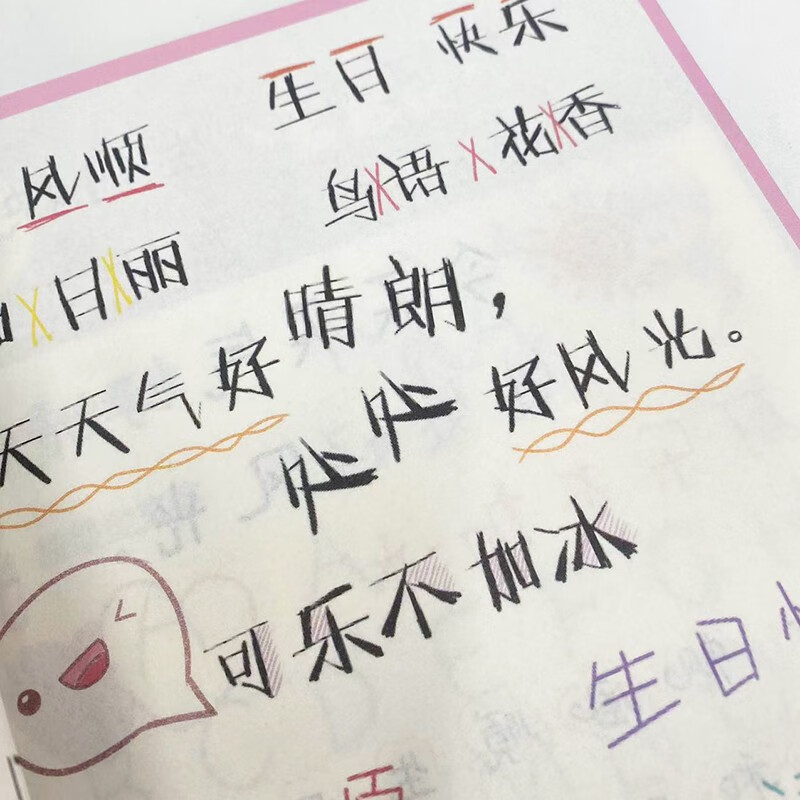 生日 快乐
风顺
鸟语花香
日丽
天天气好晴朗，
处处好风光。
可乐不加冰
生日